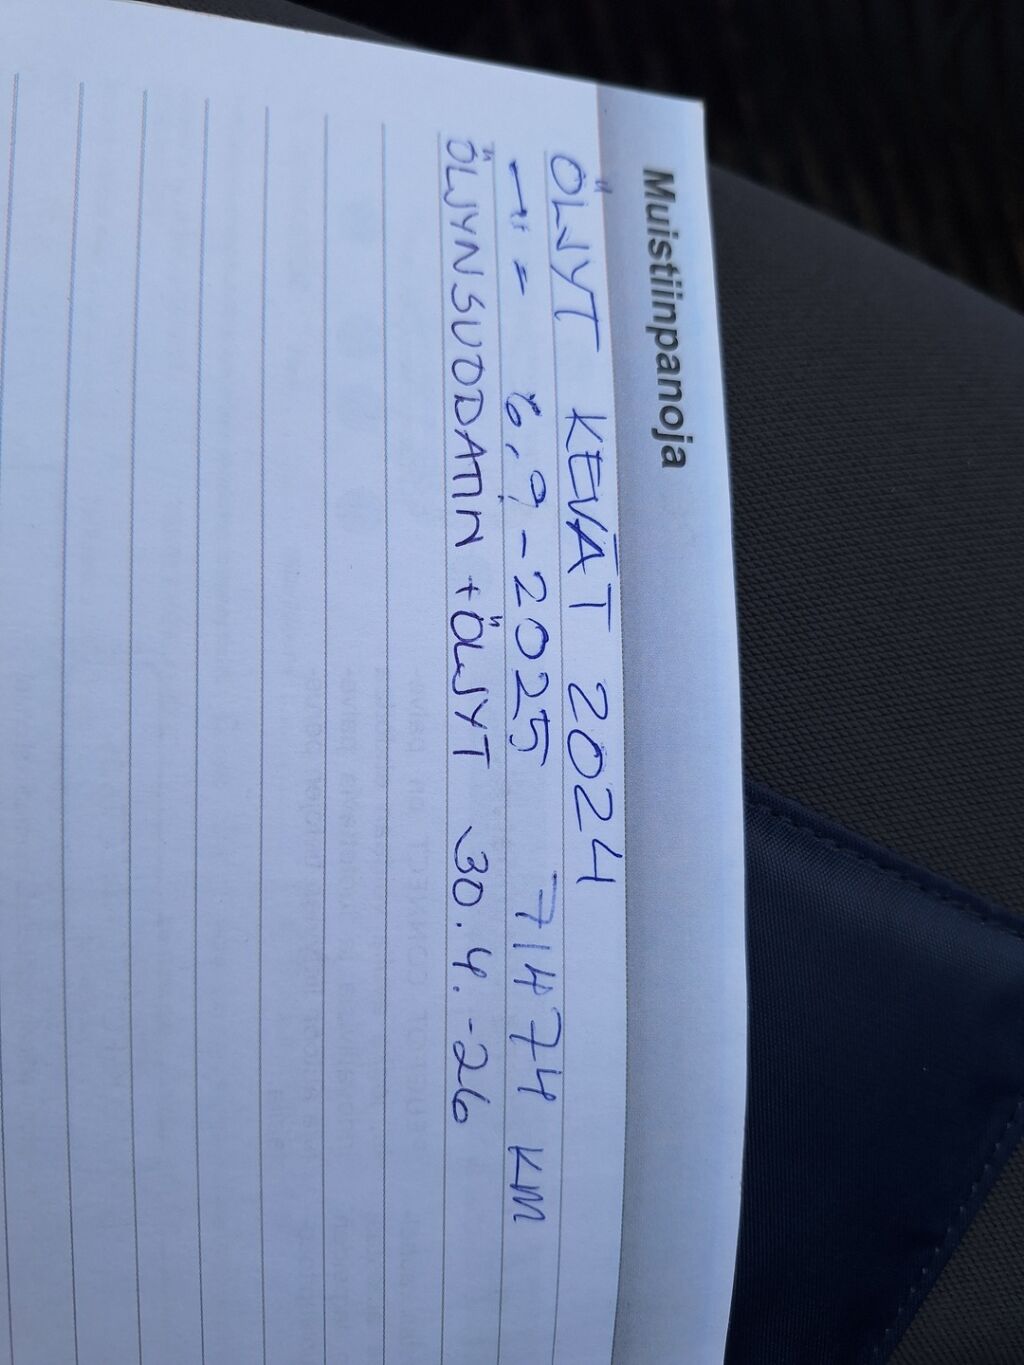 Muistiinpanoja
ÖLJYT KEVÄT 2024
—"= 6.9-2025 71474 KM
ÖLJYNSUODATIN +ÖLJYT 30.4.-26